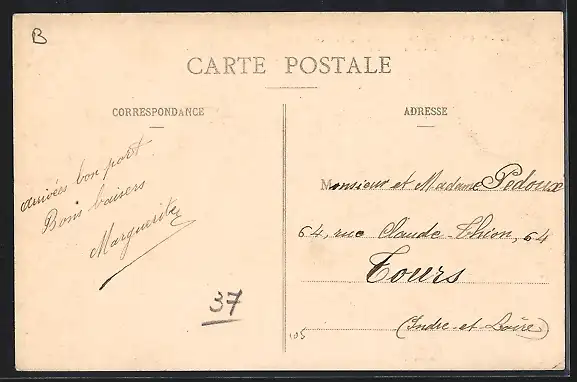 B
CARTE POSTALE
CORRESPONDANCE
ADRESSE
arrivées bon port
Bons baisers
Marguerite
37
105
Monsieur et Madame Pedoux
64, rue Claude-Thion, 64
Tours
(Indre-et-Loire)